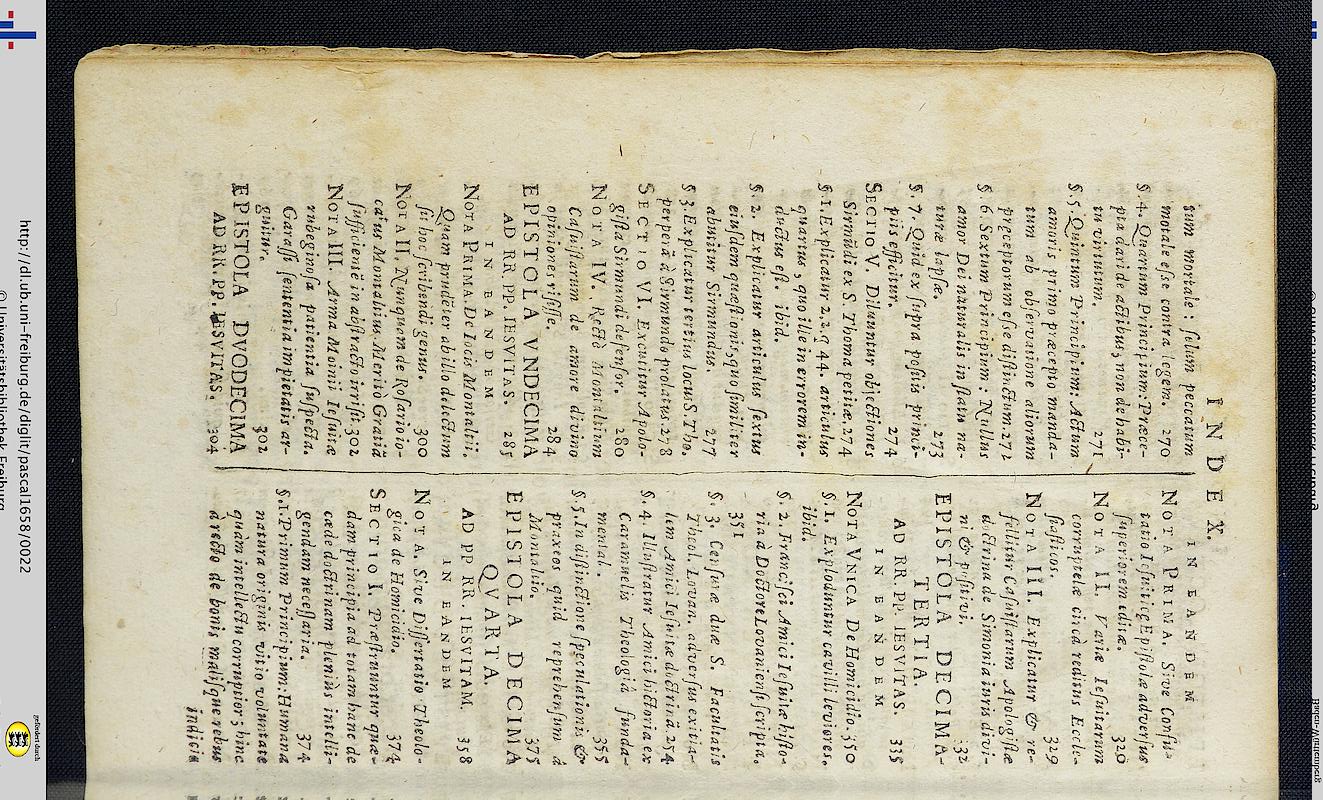 INDEX.
tum mortale: solum peccatum
motale esse contra legem. 270
§. 4. Quartum Principium: Præce-
pta dari de actibus, non de habi-
tu virtutum. 271
§ 5 Quintum Principium: Actum
amoris primo præcepto manda-
tum ab observatione aliorum
præceptorum esse distinctum. 272
§ 6 Sextum Principium: Nullus
amor Dei naturalis in statu na-
turæ lapsæ. 273
§. 7. Quid ex supra positis princi-
piis efficitur. 274
SECTIO V. Diluuntur objectiones
Sirmũdi ex S Thoma petitæ. 274
§. 1. Explicatur 2. 2. q 44. articulus
quartus, quo ille in errorem in-
ductus est. ibid.
§. 2. Explicatur articulus sextus
eiusdem quæstionis, quo similiter
abutitur Sirmundus. 277
§ 3. Explicatur tertius locus S. Tho.
perperã à Sirmundo prolatus. 278
SECTIO VI. Excutitur Apolo-
gista Sirmundi defensor. 280
NOTA IV. Rectè Montaltium
Casuistarum de amore divino
opiniones risisse. 284
EPISTOLA VNDECIMA
AD RR. PP. IESVITAS. 285
IN EANDEM
NOTA PRIMA. De Iocis Montaltii.
Quam prudẽter ab illo delectum
sit hoc scribendi genus. 300
NOTA II. Nunquam de Rosario io-
catus Montaltius. Meritò Gratiã
sufficientẽ in abstracto irrisit. 302
NOTA III. Arma Moinii Iesuitæ
rubeginosa patientia suspecta.
Garassi sententia impietatis ar-
guitur. 302
EPISTOLA DVODECIMA
AD RR. PP. IESVITAS. 304
IN EANDEM
NOTA PRIMA. Sive Confu-
tatio Iesuiticę Epistolæ adversus
superiorem editæ. 320
NOTA II. Variæ Iesuitarum
corruptelæ circà reditus Eccle-
siasticos. 329
NOTA III. Explicatur & re-
fellitur Casuistarum Apologistæ
doctrina de Simonia iuris divi-
ni & positivi. 332
EPISTOLA DECIMA-
TERTIA.
AD RR. PP. IESVITAS. 335
IN EANDEM
NOTA VNICA De Homicidio. 350
§ 1. Exploduntur cavilli leviores.
ibid.
§. 2. Frãcisci Amici Iesuitæ histo-
ria à Doctore Lovaniensi scripta.
351
§. 3. Censuræ duæ S. Facultatis
Theol. Lovan. adversus exitia-
lem Amici Iesuitæ doctrinã. 254
§. 4. Illustratur Amici historia ex
Caramuelis Theologiâ funda-
mental. 355
§. 5. In distinctione speculationis &
praxeos quid reprehensum à
Montaltio. 375
EPISTOLA DECIMA
QVARTA.
AD PP RR. IESVITAM. 358
IN EANDEM
NOTA. Sive Dissertatio Theolo-
gica de Homicidio. 374
SECTIO I. Præstruuntur quæ-
dam principia ad totam hanc de
cæde doctrinam pleniùs intelli-
gendam necessaria. 374
§. 1. Primum Principium: Humana
natura originis vitio voluntate
quam intellectu corruptior; hinc
à recto de bonis malisque rebus
indicii
http://dl.ub.uni-freiburg.de/diglit/pascal1658/0022
© Universitätsbibliothek Freiburg
gefördert durch